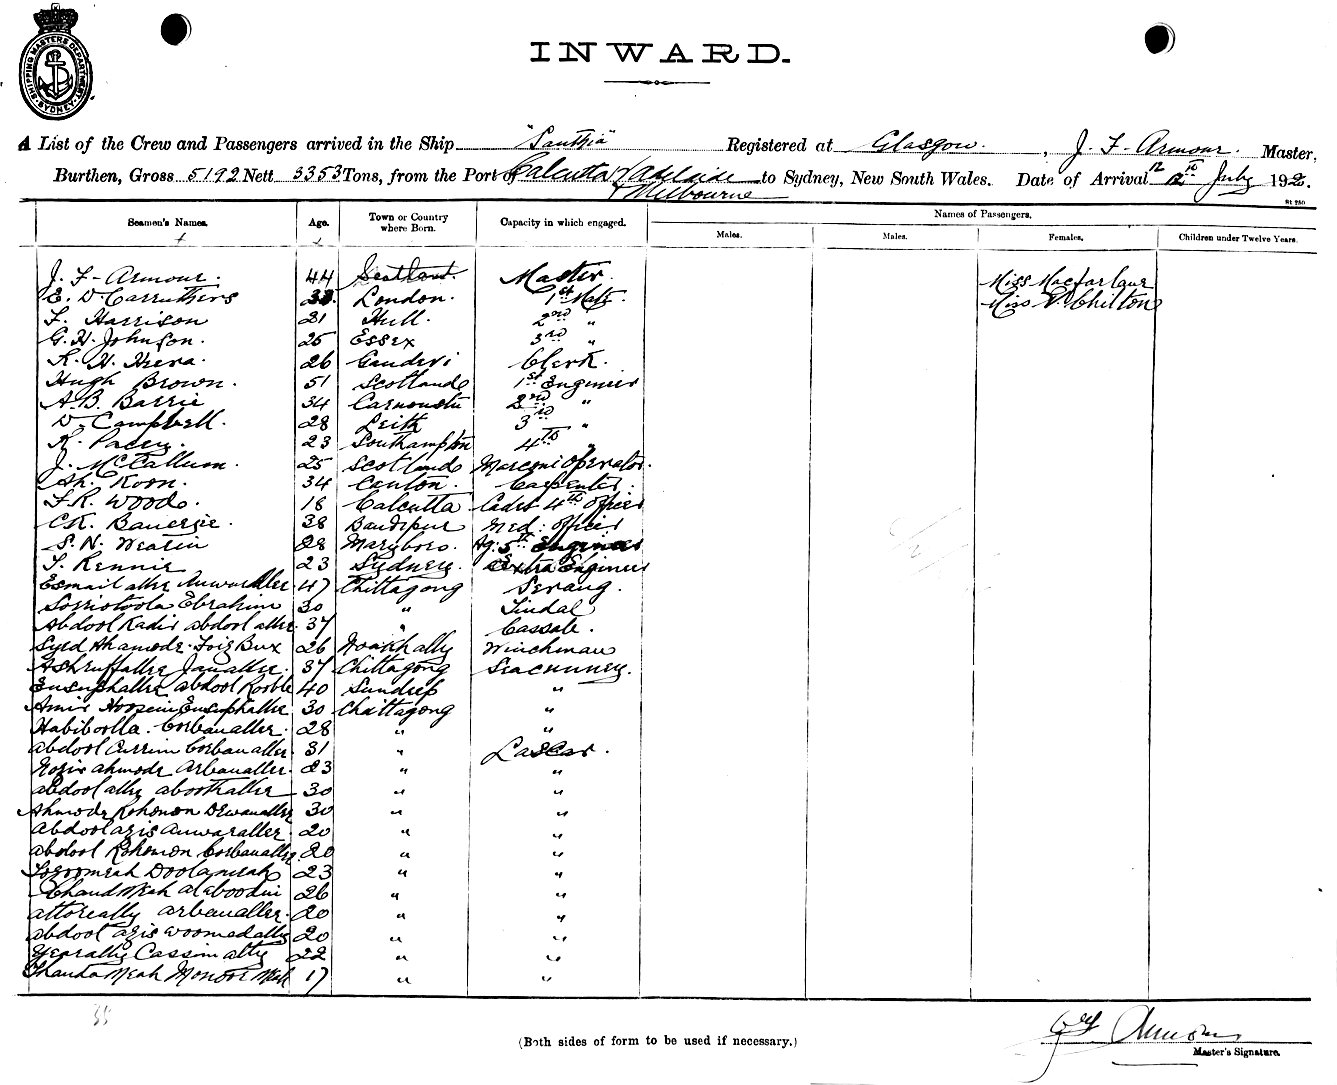 SHIPPING MASTERS DEPARTMENT SYDNEY
INWARD.
A List of the Crew and Passengers arrived in the Ship "Santhia" Registered at Glasgow. , J. F. Armour. Master,
Burthen, Gross 5192 Nett 3353 Tons, from the Port of Calcutta Adelaide to Sydney, New South Wales. Date of Arrival 12th July 192
+ Melbourne
Seamen's Names. Age. Town or Country where Born. Capacity in which engaged. Names of Passengers.
Males. Males. Females. Children under Twelve Years.
J. F. Armour. 44 Scotland. Master. Miss Macfarlane
E. D. Carruthers London. 1st Mate. Miss Chilton
F. Harrison 21 Hull. 2nd "
G. H. Johnson. 25 Essex 3rd "
K. H. Heera. 26 Gandevi Clerk.
Hugh Brown. 51 Scotland 1st Engineer
A. B. Barrie 34 Carnoustie 2nd "
D. Campbell. 28 Leith 3rd "
R. Pacey. 23 Southampton 4th "
J. McCallum. 25 Scotland Marconi Operator.
Ah. Koon. 34 Canton. Carpenter.
F. R. Woods. 18 Calcutta Cadet 4th Officer
C. K. Banerjie. 38 Bandipur Med: Officer
S. N. 28 Maryboro. Ag: 5th Engineer
J. Rennie 23 Sydney. Extra Engineer
Esmail aller Anwaraller 47 Chittagong Serang.
Ebrahim 30 " Tindal
Abdool Kadir abdool aller. 37 " Cassab.
Syed Ahamode Foiz Bux 26 Noakhally Winchman
Ashruffaller Janaller. 37 Chittagong Seacunney.
Eusuphaller abdool 40 Sundeep "
Amir Hossein Eusuphaller 30 Chittagong "
Habiboolla. Corbanaller. 28 " "
abdool Currim Corbanaller. 31 " Lascar.
Nozir ahmode Arbanaller. 23 " "
abdool ally 30 " "
Ahmode Rohomon Dewanaller 30 " "
abdool azis Anwaraller. 20 " "
abdool Rohomon Corbanaller. 20 " "
Doolameah 23 " "
Chand Meah 26 " "
attoreally arbanaller. 20 " "
abdool azis 20 " "
Cassim ally 22 " "
Chanda Meah Monoor Meah 17 " "
35
(Both sides of form to be used if necessary.)
J F Armour
Master's Signature.